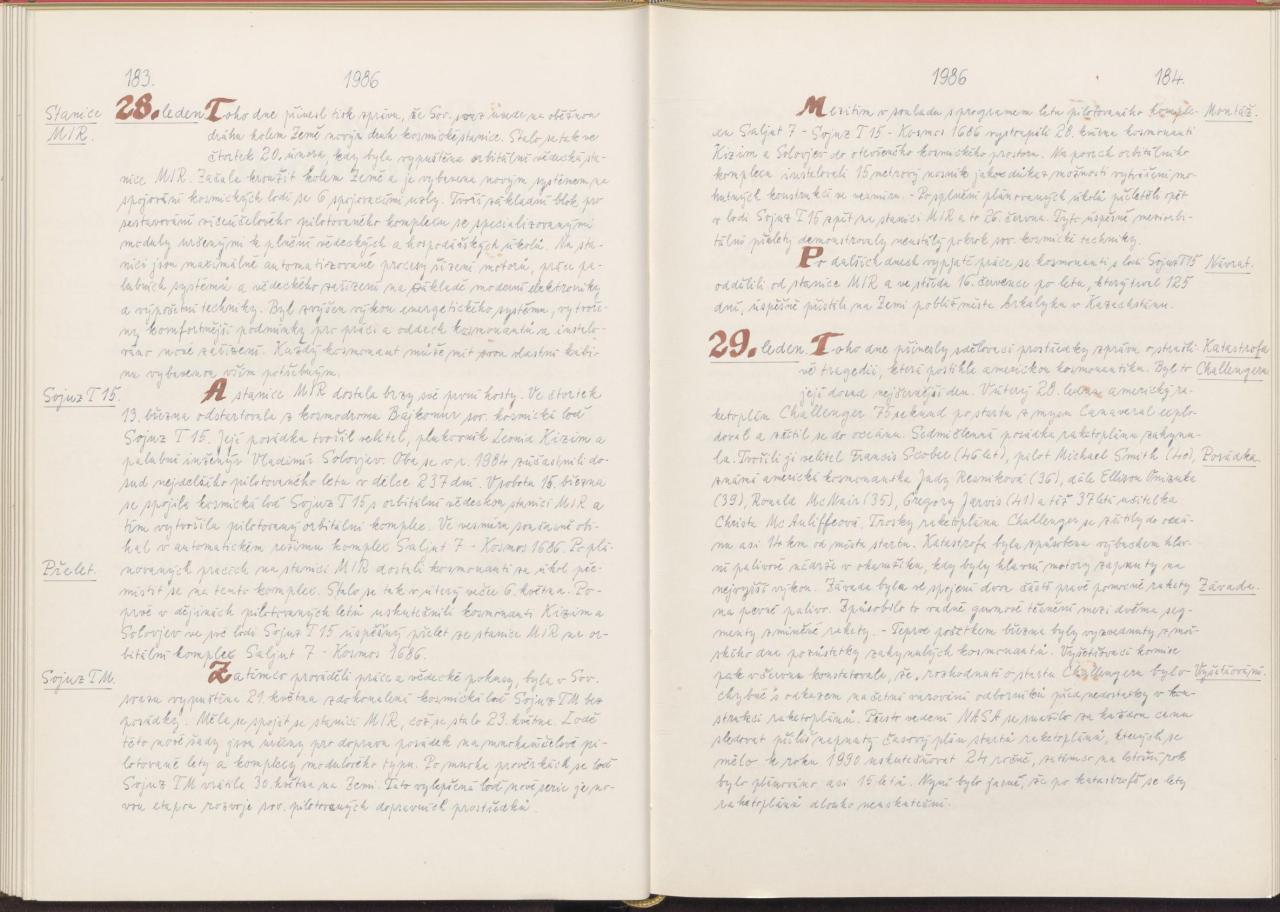 183. 1986
Stanice MIR.
28. leden. Toho dne přinesl tisk zprávu, že Sov. svaz uvedl na oběžnou
dráhu kolem Země nový druh kosmické stanice. Stalo se tak ve
čtvrtek 20. února, kdy byla vypuštěna orbitální vědecká sta-
nice MIR. Začala kroužit kolem Země a je vybavena novým systémem pro
spojování kosmických lodí se 6 spojovacími uzly. Tvoří základní blok pro
sestavování víceúčelového pilotovaného komplexu se specializovanými
moduly určenými k plnění vědeckých a hospodářských úkolů. Na sta-
nici jsou maximálně automatizované procesy řízení motorů, práce pa-
lubních systémů a vědeckého zařízení na základě moderní elektroniky
a výpočetní techniky. Byl zvýšen výkon energetického systému, vytvoře-
ny komfortnější podmínky pro práci a oddech kosmonautů a instalo-
váno nové zařízení. Každý kosmonaut může mít svou vlastní kabi-
nu vybavenou vším potřebným.
Sojuz T 15.
A stanice MIR dostala brzy své první hosty. Ve čtvrtek
13. března odstartovala z kosmodromu Bajkonur sov. kosmická loď
Sojuz T 15. Její posádku tvořil velitel, plukovník Leonid Kizim a
palubní inženýr Vladimír Solovjev. Oba se v r. 1984 zúčastnili do-
sud nejdelšího pilotovaného letu v délce 237 dní. V sobotu 15. března
se spojila kosmická loď Sojuz T 15 s orbitální vědeckou stanicí MIR a
tím vytvořila pilotovaný orbitální komplex. Ve vesmíru současně obí-
hal v automatickém režimu komplex Saljut 7 - Kosmos 1686. Po plá-
Přelet.
novaných pracích na stanici MIR dostali kosmonauti za úkol pře-
místit se na tento komplex. Stalo se tak v úterý večer 6. května. Po-
prvé v dějinách pilotovaných letů uskutečnili kosmonauti Kizim a
Solovjev ve své lodi Sojuz T 15 úspěšný přelet ze stanice MIR na or-
bitální komplex Saljut 7 - Kosmos 1686.
Sojuz TM.
Zatímco prováděli práce a vědecké pokusy, byla v Sov.
svazu vypuštěna 21. května zdokonalená kosmická loď Sojuz TM bez
posádky. Měla se spojit se stanicí MIR, což se stalo 23. května. Lodě
této nové řady jsou určeny pro dopravu posádek na mnohaúčelové pi-
lotované lety a komplexy modulového typu. Po mnoha prověrkách se loď
Sojuz TM vrátila 30. května na Zemi. Tato vylepšená loď nové serie je no-
vou etapou rozvoje sov. pilotovaných dopravních prostředků.
1986 184.
Mezitím v souladu s programem letu pilotovaného komple-
Montáž.
xu Saljut 7 - Sojuz T 15 - Kosmos 1686 vystoupili 28. května kosmonauti
Kizim a Solovjev do otevřeného kosmického prostoru. Na povrch orbitálního
komplexu instalovali 15 metrový nosník jako důkaz možnosti vytváření mo-
hutných konstrukcí ve vesmíru. - Po splnění plánovaných úkolů přeletěli opět
v lodi Sojuz T 15 zpět na stanici MIR a to 26. června. Tyto úspěšné meziorbi-
tální přelety demonstrovaly neustálý pokrok sov. kosmické techniky.
Po dalších dnech vypjaté práce se kosmonauti s lodí Sojuz T 15
Návrat.
oddělili od stanice MIR a ve středu 16. července po letu, který trval 125
dní, úspěšně přistáli na Zemi poblíž města Arkalyku v Kazachstánu.
29. leden. Toho dne přinesly sdělovací prostředky zprávu o straš-
Katastrofa Challengeru
né tragedii, která postihla americkou kosmonautiku. Byl to
její dosud nejčernější den. V úterý 28. ledna americký ra-
ketoplán Challenger 75 sekund po startu z mysu Canaveral explo-
doval a zřítil se do oceánu. Sedmičlenná posádka raketoplánu zahynu-
la. Tvořili ji velitel Francis Scobee (46 let), pilot Michael Smith (40),
Posádka.
známá americká kosmonautka Judy Resniková (36), dále Ellison Onizuka
(39), Ronald McNair (35), Gregory Jarvis (41) a též 37letá učitelka
Christa McAuliffeová. Trosky raketoplánu Challenger se zřítily do oceá-
nu asi 14 km od místa startu. Katastrofa byla způsobena výbuchem hlav-
ní palivové nádrže v okamžiku, kdy byly hlavní motory zapnuty na
nejvyšší výkon. Závada byla ve spojení dvou částí pravé pomocné rakety
Závada.
na pevné palivo. Způsobilo to vadné gumové těsnění mezi dvěma seg-
menty zmíněné rakety. - Teprve počátkem března byly vyzvednuty z moř-
ského dna pozůstatky zahynulých kosmonautů. Vyšetřovací komise
pak v červnu konstatovala, že „rozhodnutí o startu Challengeru bylo
Vyšetřování.
chybné“ s odkazem na četná varování odborníků před nedostatky v kon-
strukci raketoplánů. Přesto vedení NASA se snažilo za každou cenu
sledovat příliš napnutý časový plán startů raketoplánů, kterých se
mělo k roku 1990 uskutečňovat 24 ročně, zatímco na letošní rok
bylo plánováno asi 15 letů. Nyní bylo jasné, že po katastrofě se lety
raketoplánů dlouho neuskuteční.